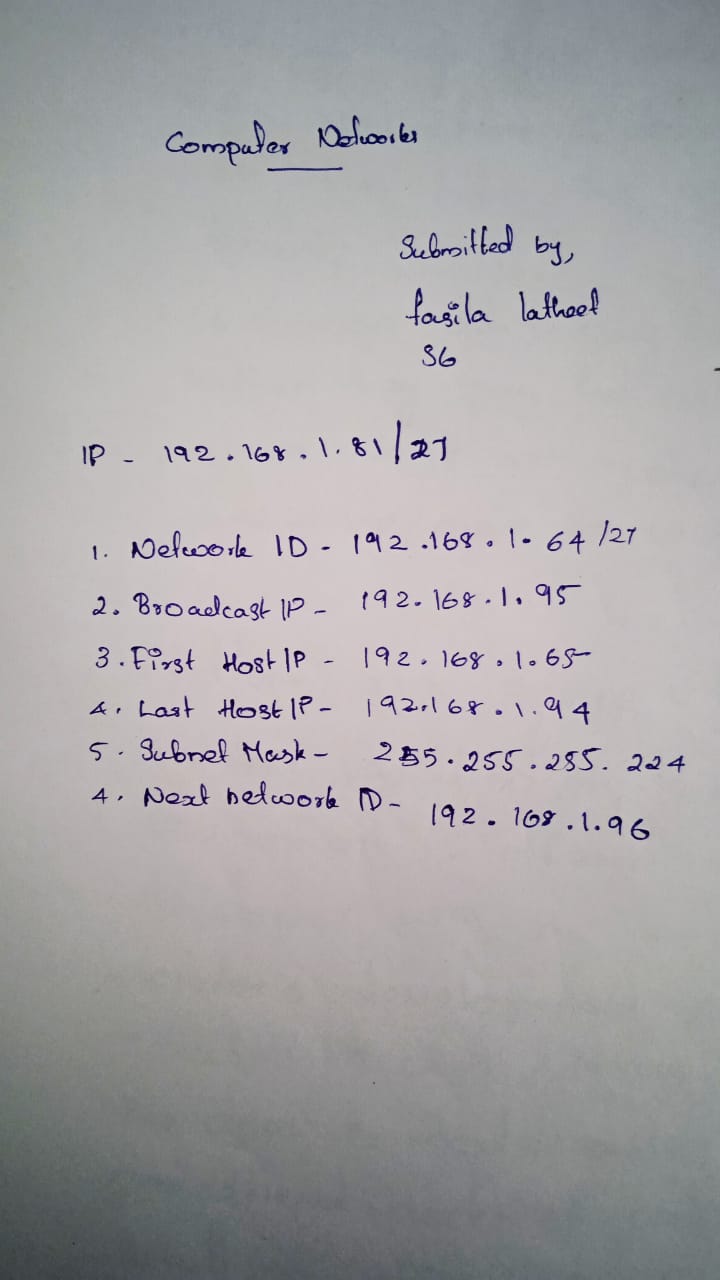 Computer Networks
Submitted by,
fasila latheef
S6
IP - 192.168.1.81/27
1. Network ID - 192.168.1.64/27
2. Broadcast IP - 192.168.1.95
3. First Host IP - 192.168.1.65
4. Last Host IP - 192.168.1.94
5. Subnet Mask - 255.255.255.224
4. Next network ID - 192.168.1.96